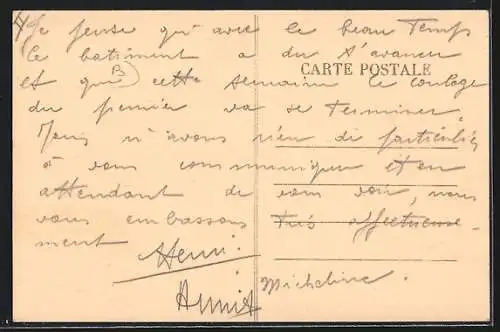 Je pense qu'avec le beau Temps
le batiment a du s'avancer
CARTE POSTALE
et que cette semaine le coulage
B
du premier va se Terminer.
Nous n'avons rien de particulier
à vous communiquer et en
attendant de vous voir, nous
vous embassons Très affectueuse
ment
Henri
Annie
Micheline.